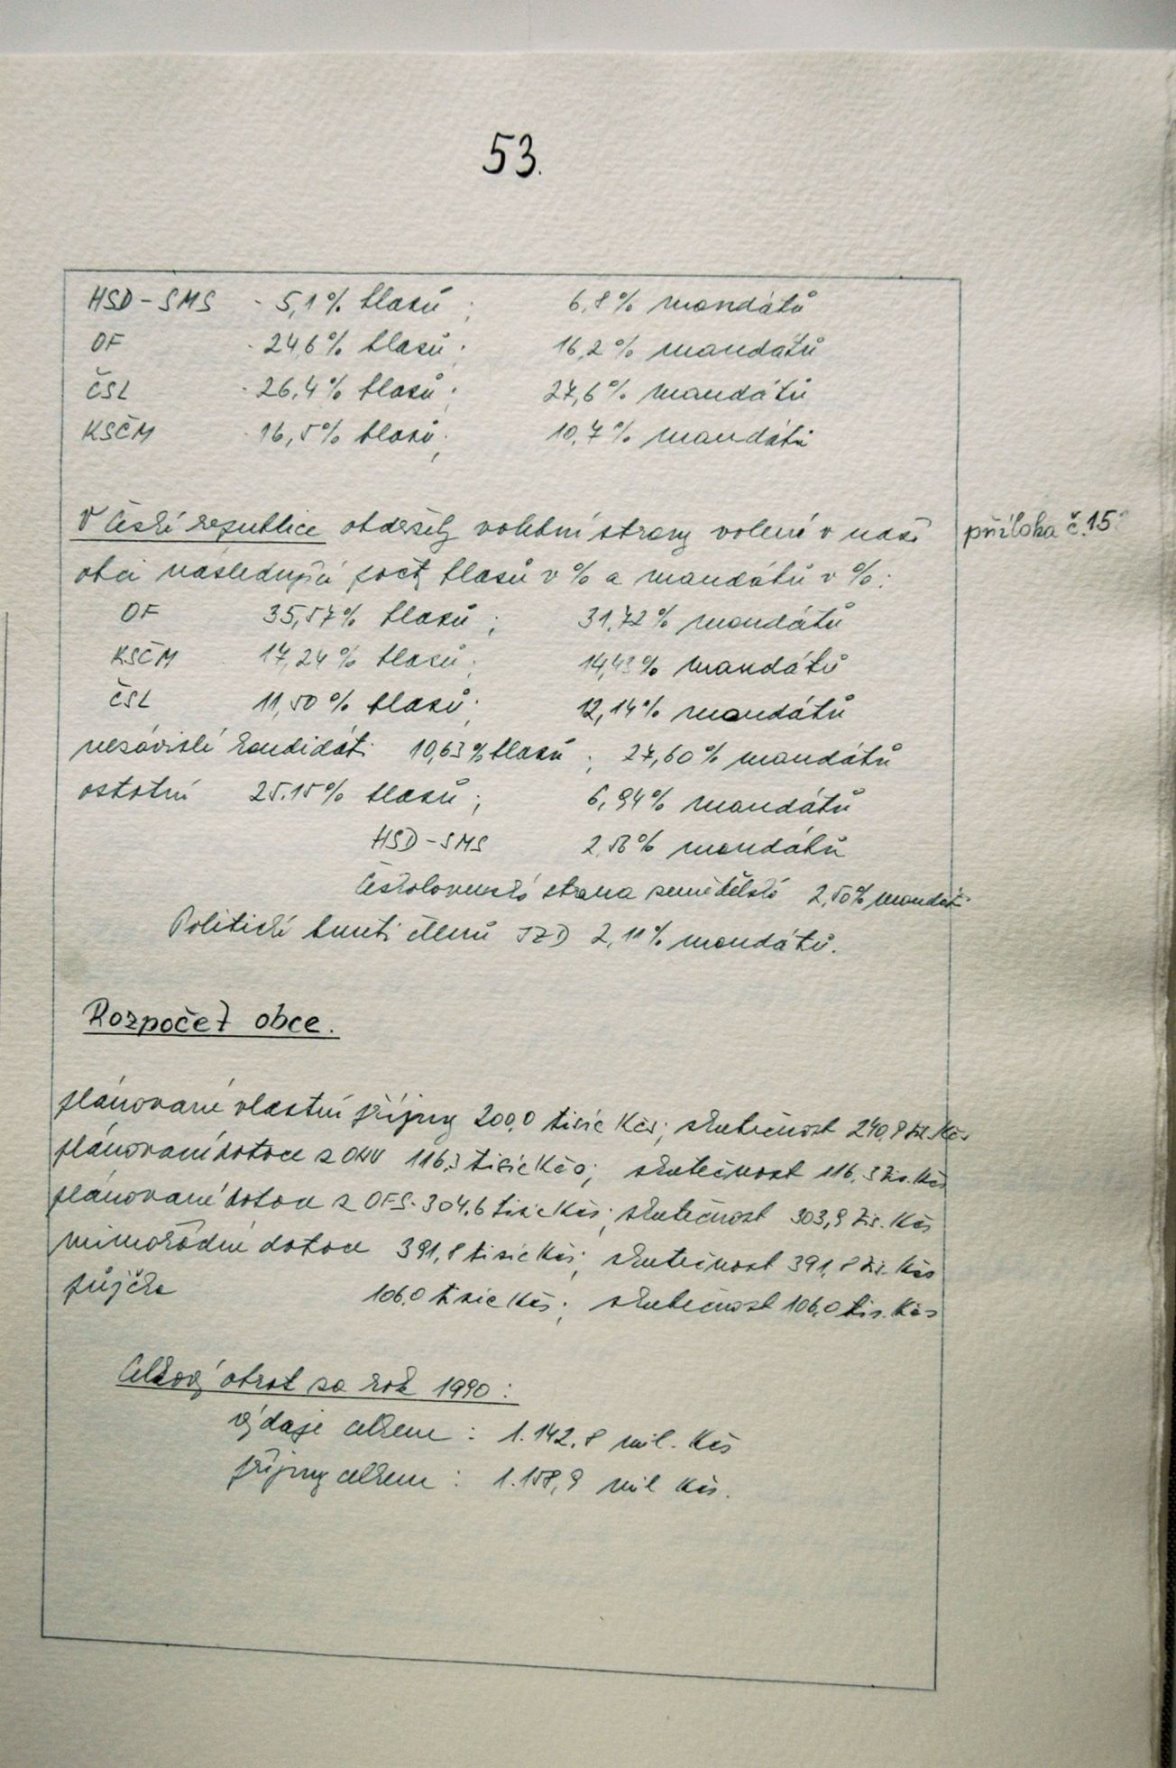 53.
HSD-SMS - 5,1% hlasů; 6,8% mandátů
OF - 24,6% hlasů; 16,2% mandátů
ČSL - 26,4% hlasů; 27,6% mandátů
KSČM - 16,5% hlasů; 10,7% mandátů
V České republice obdržely volební strany volené v naší
příloha č.15.
obci následující počty hlasů v % a mandátů v %:
OF 35,57% hlasů; 31,72% mandátů
KSČM 17,24% hlasů; mandátů
ČSL 11,50% hlasů; 12,14% mandátů
nezávislí kandidáti 10,63% hlasů; 27,60% mandátů
ostatní 25.15% hlasů; 6,94% mandátů
HSD-SMS mandátů
Československá strana zemědělská 2,50% mandátů
Politické hnutí členů JZD 2,11% mandátů.
Rozpočet obce.
plánované vlastní příjmy 200,0 tisíc Kčs; skutečnost 240,8 tis. Kčs
plánovaní dotace z ONV 116,3 tisíc Kčs; skutečnost 116,3 tis. Kčs
plánované dotace z OFS - 304,6 tisíc Kčs; skutečnost 303,9 tis. Kčs
mimořádné dotace 391,8 tisíc Kčs; skutečnost 391,8 tis. Kčs
půjčka 106,0 tisíc Kčs; skutečnost 106,0 tis. Kčs
Celkový obrat za rok 1990:
výdaje celkem: 1.142,8 mil. Kčs
příjmy celkem: 1.158,9 mil Kčs.